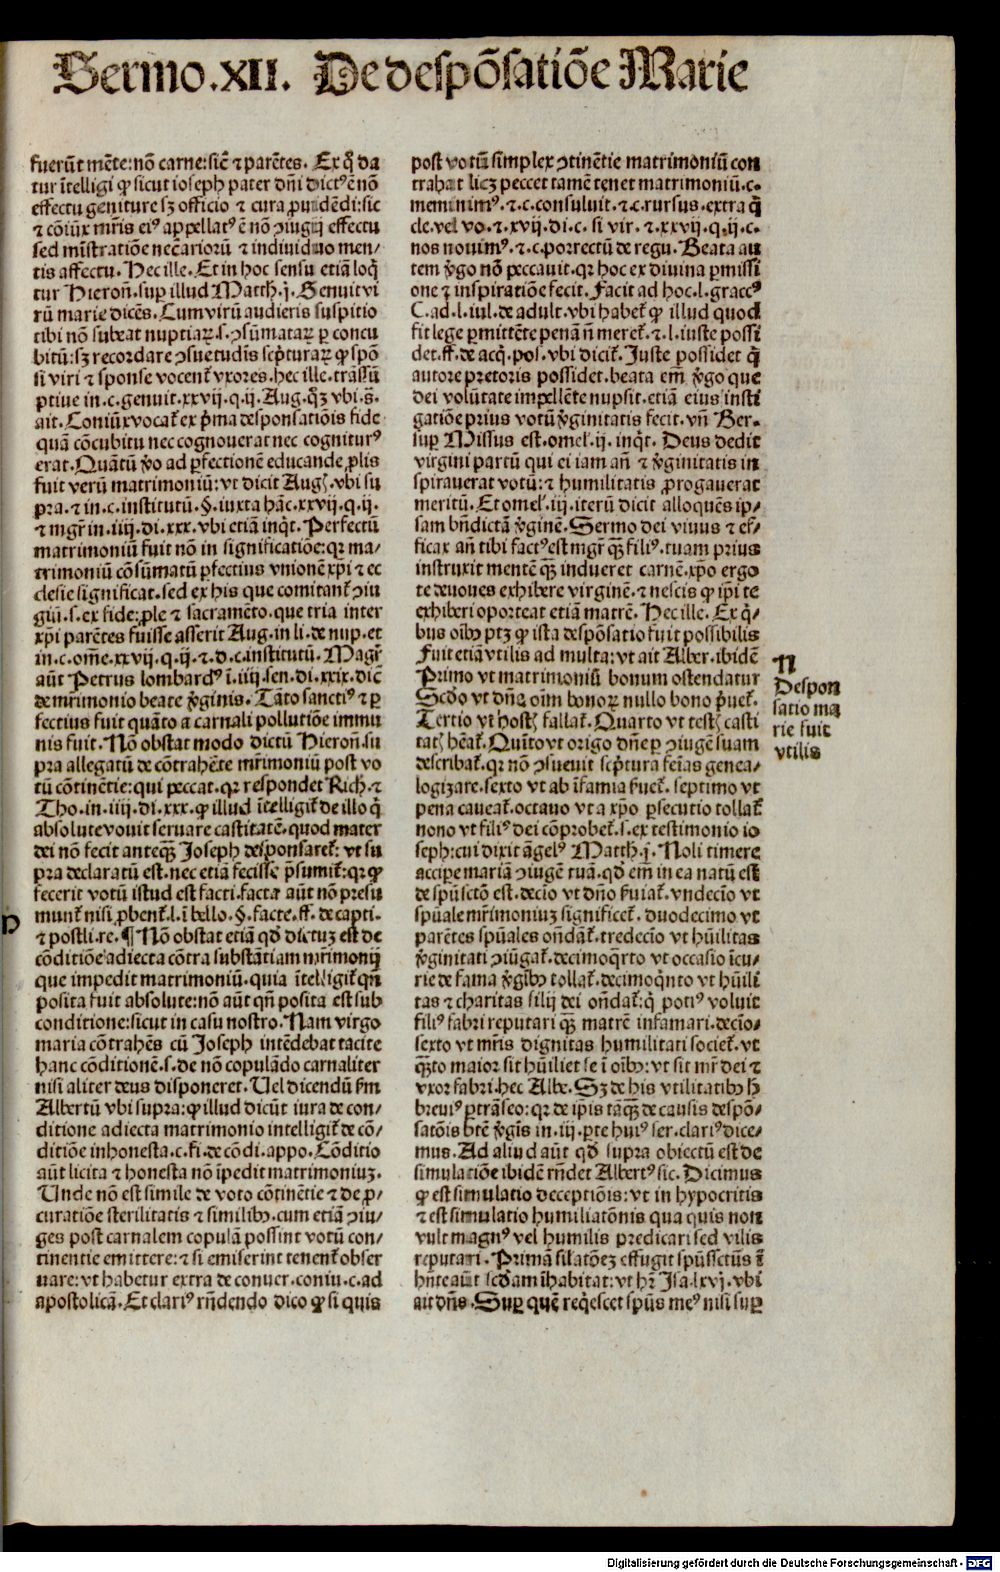 Sermo.XII. De despõsatiõe Marie
fuerũt mẽte: nõ carne: sicẽ ⁊ parẽtes. Ex q̃ da
tur ĩtelligi ꝙ sicut ioseph pater dñi dictꝰ ẽ nõ
effectu geniture sꝫ officio ⁊ cura ꝓuidẽdi: sic
⁊ cõiũx mr̃is eiꝰ appellatꝰ ẽ nõ ꝯiugij effectu
sed mĩstratiõe necẽariorũ ⁊ indiuiduo men/
tis affectu. Hec ille. Et in hoc sensu etiã loq̃
tur Hieroñ. suꝑ illud Matth.j. Genuit vi
rũ marie dicẽs. Cum virũ audieris suspitio
tibi nõ subeat nuptiaꝝ.s.ꝯsũmataꝝ ꝑ concu
bitũ: sꝫ recordare ꝯsuetudĩs scp̃turaꝝ ꝙ spõ
si viri ⁊ sponse vocent᷑ vxores. hec ille. trãssũ
ptiue in.c. genuit.xxvij.q.ij. Aug. q̃ꝫ vbi.s̃.
ait. Coniũx vocat᷑ ex p̃ma desponsatiõis fide
quã cõcubitu nec cognouerat nec cogniturꝰ
erat. Quãtũ ꝟo ad ꝑfectionẽ educande ꝓlis
fuit verũ matrimoniũ: vt dicit Aug. vbi su
pra. ⁊ in.c. institutũ.§. iuxta hãc.xxvij.q.ij.
⁊ mgr̃ in.iiij.di.xxx. vbi etiã inq̃t. Perfectũ
matrimoniũ fuit nõ in significatiõe: qꝛ ma/
trimoniũ cõsũmatũ ꝑfectius vnionẽ xp̃i ⁊ ec
clesie significat. sed ex his que comitant᷑ ꝯiu
giũ.s. ex fide: ꝓle ⁊ sacramẽto. que tria inter
xp̃i parẽtes fuisse asserit Aug. in li. de nup. et
in.c. om̃e.xxvij.q.ij.⁊.d.c. institutũ. Magr̃
aũt Petrus lombardꝰ ĩ.iiij.sen.di.xxix. dicẽ
de mr̃imonio beate ꝟginis. Tãto sanctiꝰ ⁊ ꝑ
fectius fuit quãto a carnali pollutiõe immu
nis fuit. Nõ obstat modo dictũ Hieroñ. su
pra allegatũ de cõtrahẽte mr̃imoniũ post vo
tũ cõtinẽtie: qui peccat. qꝛ respondet Rich. ⁊
Tho. in.iiij.di.xxx. ꝙ illud ĩtelligit᷑ de illo q̃
absolute vouit seruare castitatẽ. quod mater
dei nõ fecit anteqꝫ̃ Joseph desponsaret᷑: vt su
pra declaratũ est. nec etiã fecisse p̃sumit᷑: qꝛ ꝙ
fecerit votũ istud est facti. facta aũt nõ presu
munt᷑ nisi ꝓbent᷑.l. ĩ bello.§. facte.ff. de capti.
⁊ postli. re. ¶ Nõ obstat etiã qd̃ dictuz est de
cõditiõe adiecta cõtra substãtiam mr̃imonij
que impedit matrimoniũ. quia ĩtelligit᷑ qñ
posita fuit absolute: nõ aũt qñ posita est sub
conditione: sicut in casu nostro. Nam virgo
maria cõtrahẽs cũ Joseph intẽdebat tacite
hanc cõditionẽ.s. de nõ copulãdo carnaliter
nisi aliter deus disponeret. Uel dicendũ ẜm
Albertũ vbi supra: ꝙ illud dicũt iura de con/
ditione adiecta matrimonio intelligit᷑ de cõ/
ditiõe inhonesta.c. fi. de cõdi. appo. Cõditio
aũt licita ⁊ honesta nõ ĩpedit matrimoniuz.
Unde nõ est simile de voto cõtinẽtie ⁊ de ꝓ/
curatiõe sterilitatis ⁊ similibꝰ. cum etiã ꝯiu/
ges post carnalem copulã possint votũ con/
tinentie emittere: ⁊ si emiserint tenent᷑ obser
uare: vt habetur extra de conuer. coniu.c. ad
apostolicã. Et clariꝰ rñdendo dico ꝙ si quis
p
post votũ simplex ꝯtinẽtie matrimoniũ con
trahat licꝫ peccet tamẽ tenet matrimoniũ.c.
meminimꝰ.⁊.c. consuluit.⁊.c. rursus. extra q̃
cle. vel vo.⁊.xvij.di.c. si vir.⁊.xxvij.q.ij.c.
nos nouimꝰ.⁊.c. porrectũ de regu. Beata au
tem ꝟgo nõ peccauit. qꝛ hoc ex diuina ꝑmissi
one ⁊ inspiratiõe fecit. Facit ad hoc.l. graccꝰ
C. ad.l. iul. de adult. vbi habet᷑ ꝙ illud quod
fit lege ꝑmittẽte penã ñ meret᷑.⁊.l. iuste possi
det.ff. de acq̃. pos. vbi dicit᷑. Juste possidet q̃
autore pretoris possidet. beata em̃ ꝟgo que
dei volũtate impellẽte nupsit. etiã eius insti
gatiõe prius votũ ꝟginitatis fecit. vñ Ber.
suꝑ Missus est. omel.ij. inq̃t. Deus dedit
virgini partũ qui ei iam añ ⁊ ꝟginitatis in
spirauerat votũ: ⁊ humilitatis ꝓrogauerat
meritũ. Et omel.iij. iterũ dicit alloquẽs ip/
sam bñdictã ꝟginẽ. Sermo dei viuus ⁊ ef/
ficax añ tibi factꝰ est mgr̃ qꝫ̃ filiꝰ. tuam prius
instruxit mentẽ qꝫ̃ indueret carnẽ. xp̃o ergo
te deuoues exhibere virginẽ ⁊ nescis ꝙ ip̃i te
exhiberi oporteat etiã matrẽ. Hec ille. Ex q̃/
bus oĩbꝰ ptꝫ ꝙ ista despõsatio fuit possibilis
Fuit etiã vtilis ad multa: vt ait Alber. ibidẽ
Primo vt matrimoniũ bonum ostendatur
Scd̃o vt dñs oĩm bonoꝝ nullo bono p̃uet᷑.
Tertio vt hostꝭ fallat᷑. Quarto vt testꝭ casti
tatꝭ hẽat᷑. Quĩto vt origo dñe ꝑ ꝯiugẽ suam
describat᷑. qꝛ nõ ꝯsueuit scp̃tura fẽĩas genea/
logizare. sexto vt ab ĩfamia p̃uet᷑. septimo vt
pena caueat᷑. octauo vt a xp̃o ꝑsecutio tollat᷑
nono vt filiꝰ dei cõprobet᷑.s. ex testimonio io
seph: cui dixit ãgelꝰ Matth.j. Noli timere
accipe mariã ꝯiugẽ tuã. qd̃ em̃ in ea natũ est
de spũsctõ est. decĩo vt dño p̃uiat᷑. vndecĩo vt
spũale mr̃imoniuz significet᷑. duodecimo vt
parẽtes spũales oñdat᷑. tredecĩo vt hũilitas
ꝟginitati ꝯiũgat᷑. decimoq̃rto vt occasio ĩcu/
rie de fama ꝟgĩbꝰ tollat᷑. decimoq̃nto vt hũili
tas ⁊ charitas filij dei oñdat᷑: q̃ potiꝰ voluit
filiꝰ fabri reputari qꝫ̃ matrẽ infamari. decĩo/
sexto vt mr̃is dignitas humilitati societ᷑. vt
qꝫ̃to maior sit hũiliet se ĩ oĩbꝰ: vt sit mr̃ dei ⁊
vxor fabri. hec Albe. Sꝫ de his vtilitatibꝰ h̃
breuiꝰ ꝑtrãseo: qꝛ de ip̃is tãqꝫ̃ de causis despõ/
satõis btẽ ꝟgĩs in.iij. ꝑte huiꝰ ser. clariꝰ dice/
mus. Ad aliud aũt qd̃ supra obiectũ est de
simulatiõe ibidẽ rñdet Albertꝰ sic. Dicimus
ꝙ est simulatio deceptiõis: vt in hypocritis
⁊ est simulatio humiliatõnis qua quis non
vult magnꝰ vel humilis predicari sed vilis
reputari. Primã sil̃atõeꝫ effugit spũssctũs ẽ
hñte aũt scd̃am ĩhabitat: vt hr̃ Isa.lxvj. vbi
ait dñs. Suꝑ quẽ req̃escet spũs meꝰ nisi suꝑ
n
Despon
satio ma
rie fuit
vtilis
Digitalisierung gefördert durch die Deutsche Forschungsgemeinschaft - DFG